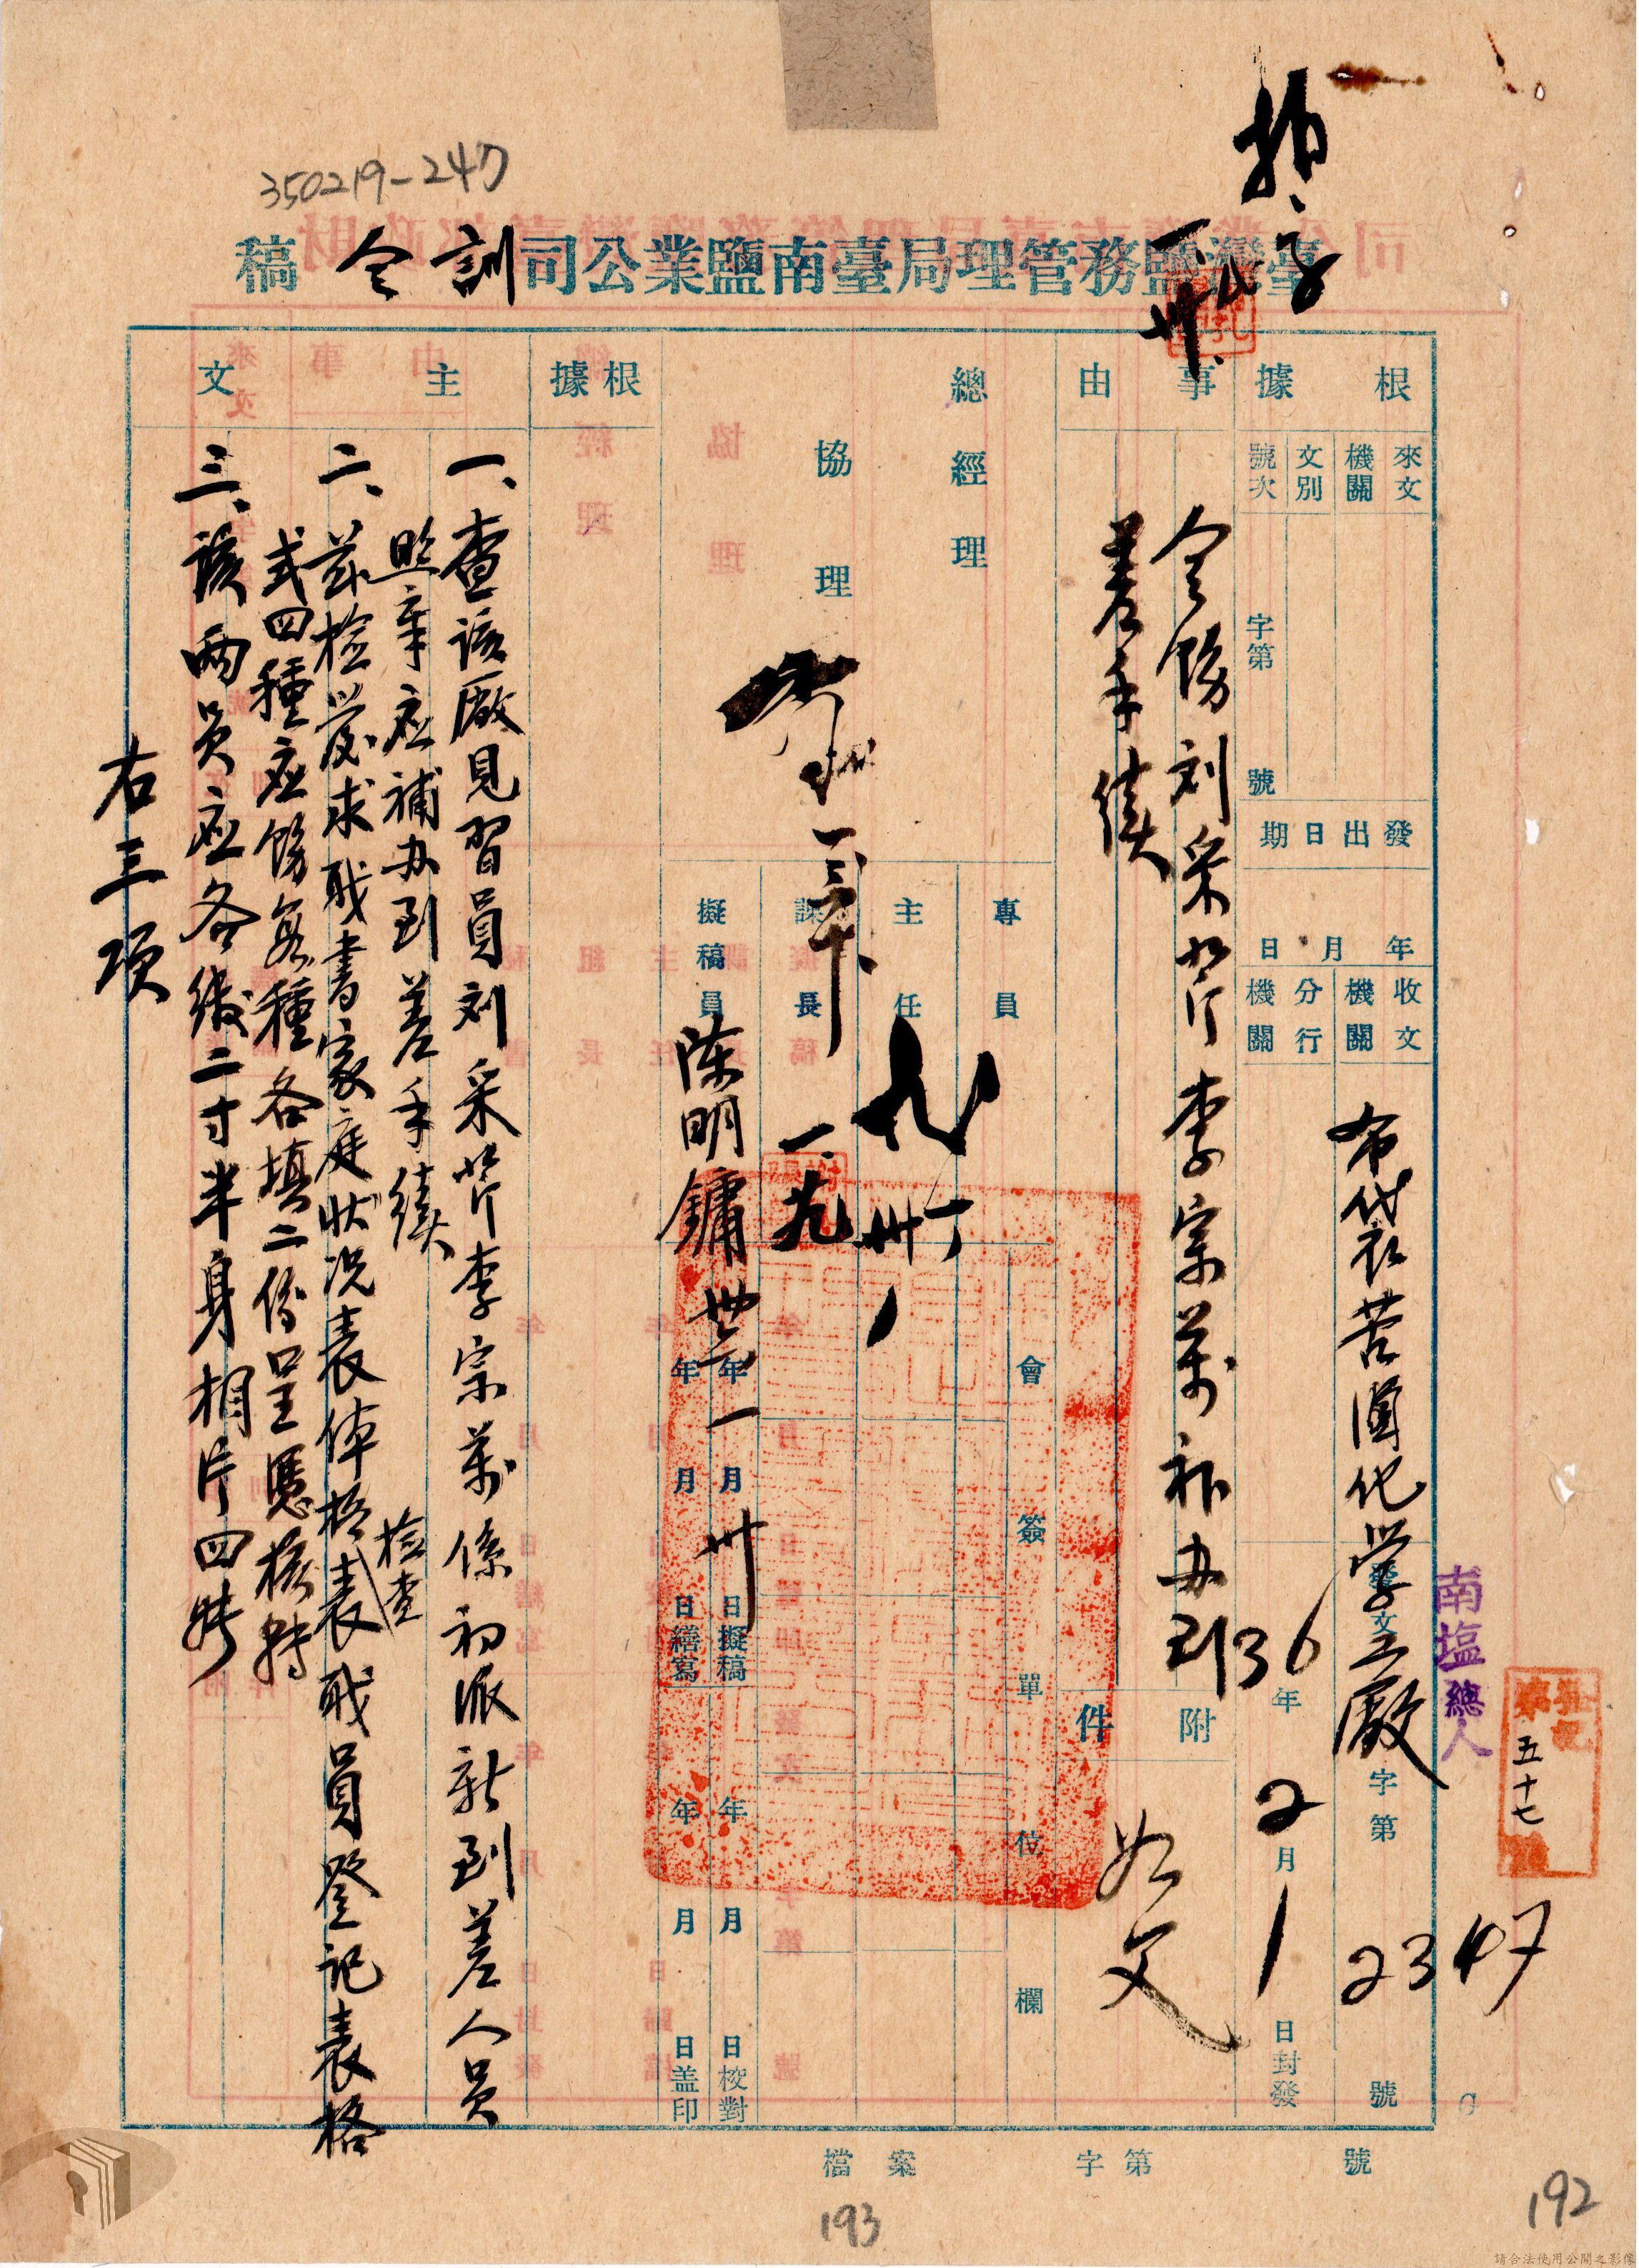 350219-247
臺灣鹽務管理局臺南鹽業公司訓令稿
根據
來文機關
文別
號次
字第
號
發出日期
年月日
收文機關
分行機關
布袋苦滷化學工廠
南塩總人
字第2347號
登記
五十七
36年2月1日封發
事由
令飭刘采芹李宗萬補办到
差手續
附件
如文
總經理
協理
專員
主任
課長
擬稿員
陈明鏞
卅六年一月卅日擬稿
年月日繕寫
年月日校對
年月日蓋印
會簽單位欄
根據
主文
一、查該廠見習員刘采芹李宗萬係初派新到差人員
照章应補办到差手續
二、茲检發求职書家庭狀况表体格检查表职員登記表格
式四種应飭每種各填二份呈憑核轉
三、該兩员应各缴二寸半身相片四帋
右三項
檔案
字第
號
193
192
請合法使用公開之影像